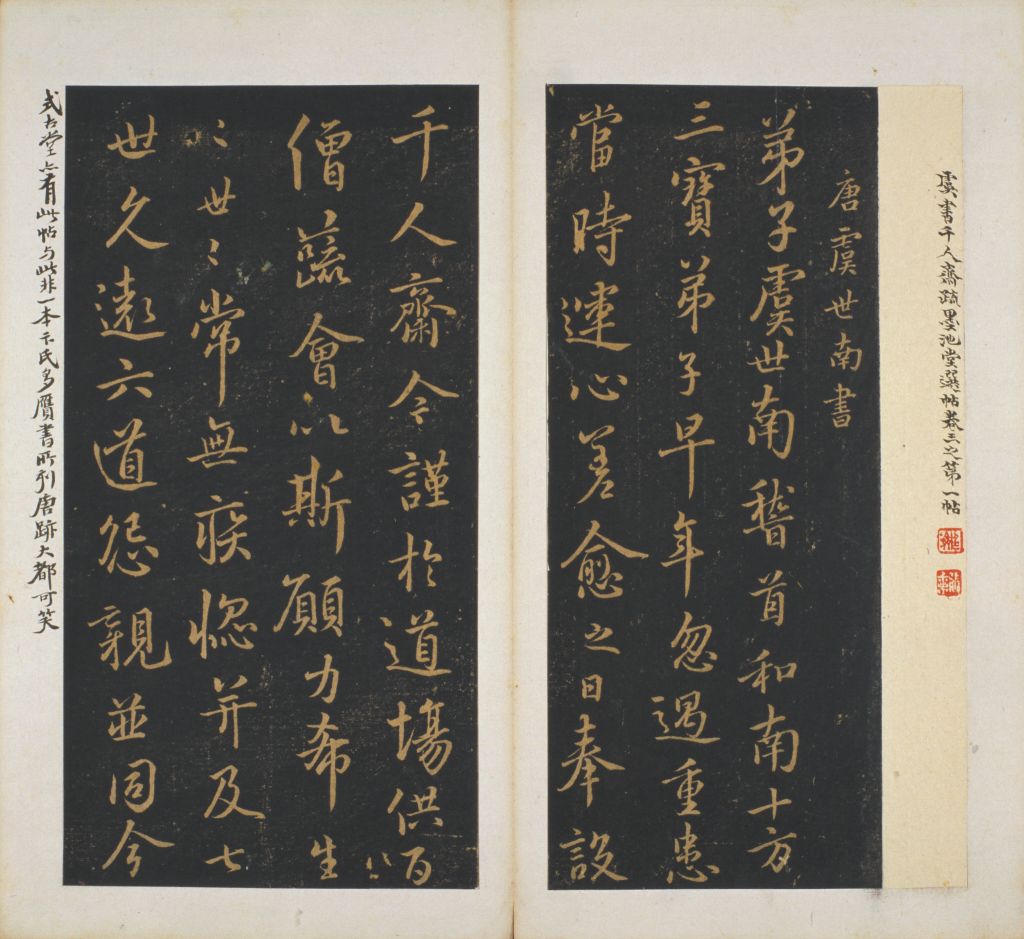 虞書千人齋疏墨池堂選帖卷三之第一帖
唐虞世南書
弟子虞世南稽首和南十方
三寶弟子早年忽遇重患
當時運心差愈之日奉設
千人齋今謹於道場供百
僧蔬會以斯願力希生
生世世常無疾惱并及七
世久遠六道怨親並同今
式古堂亦有此帖与此非一本卞氏多贋書所刊唐跡大都可笑